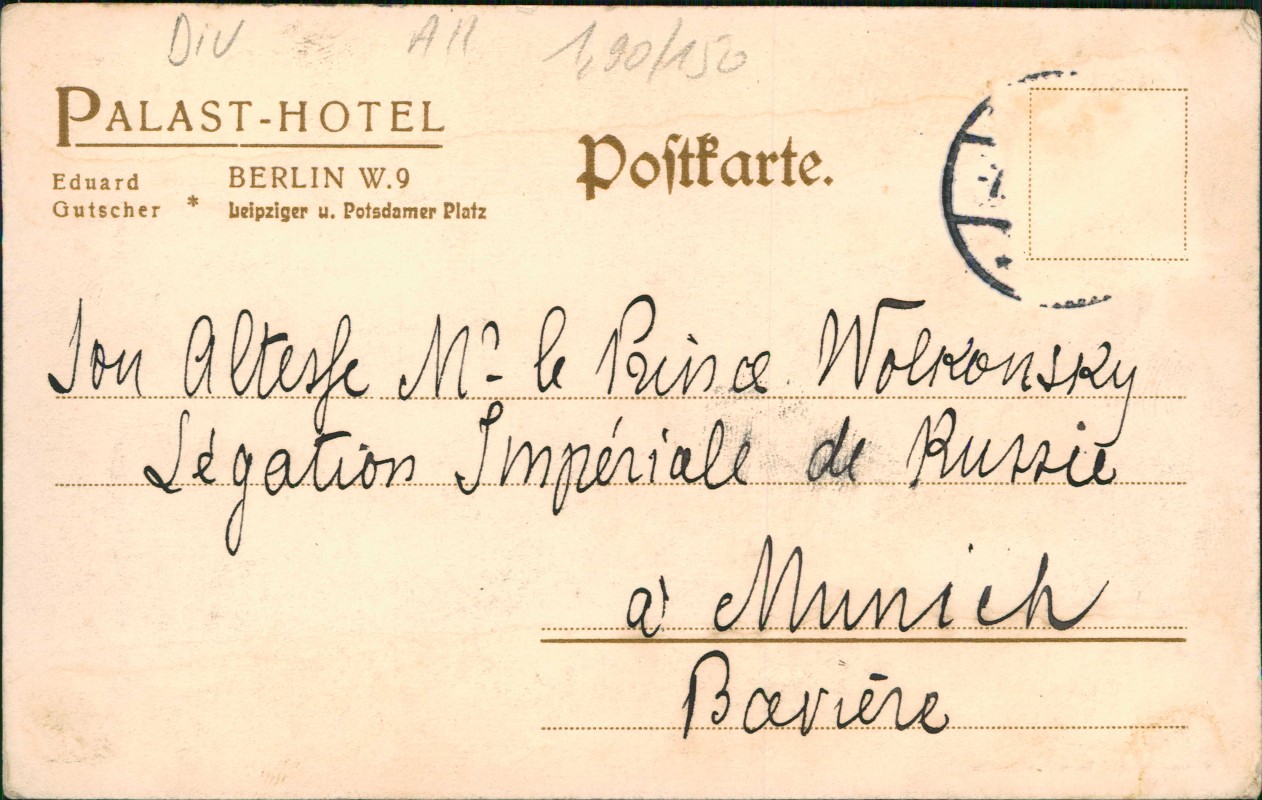 Div All 1,90/150
PALAST-HOTEL
Eduard Gutscher * BERLIN W.9
Leipziger u. Potsdamer Platz
Poſtkarte.
Son Altesse Mr. le Prince Wolkonsky
Légation Impériale de Russie
à Munich
Bavière